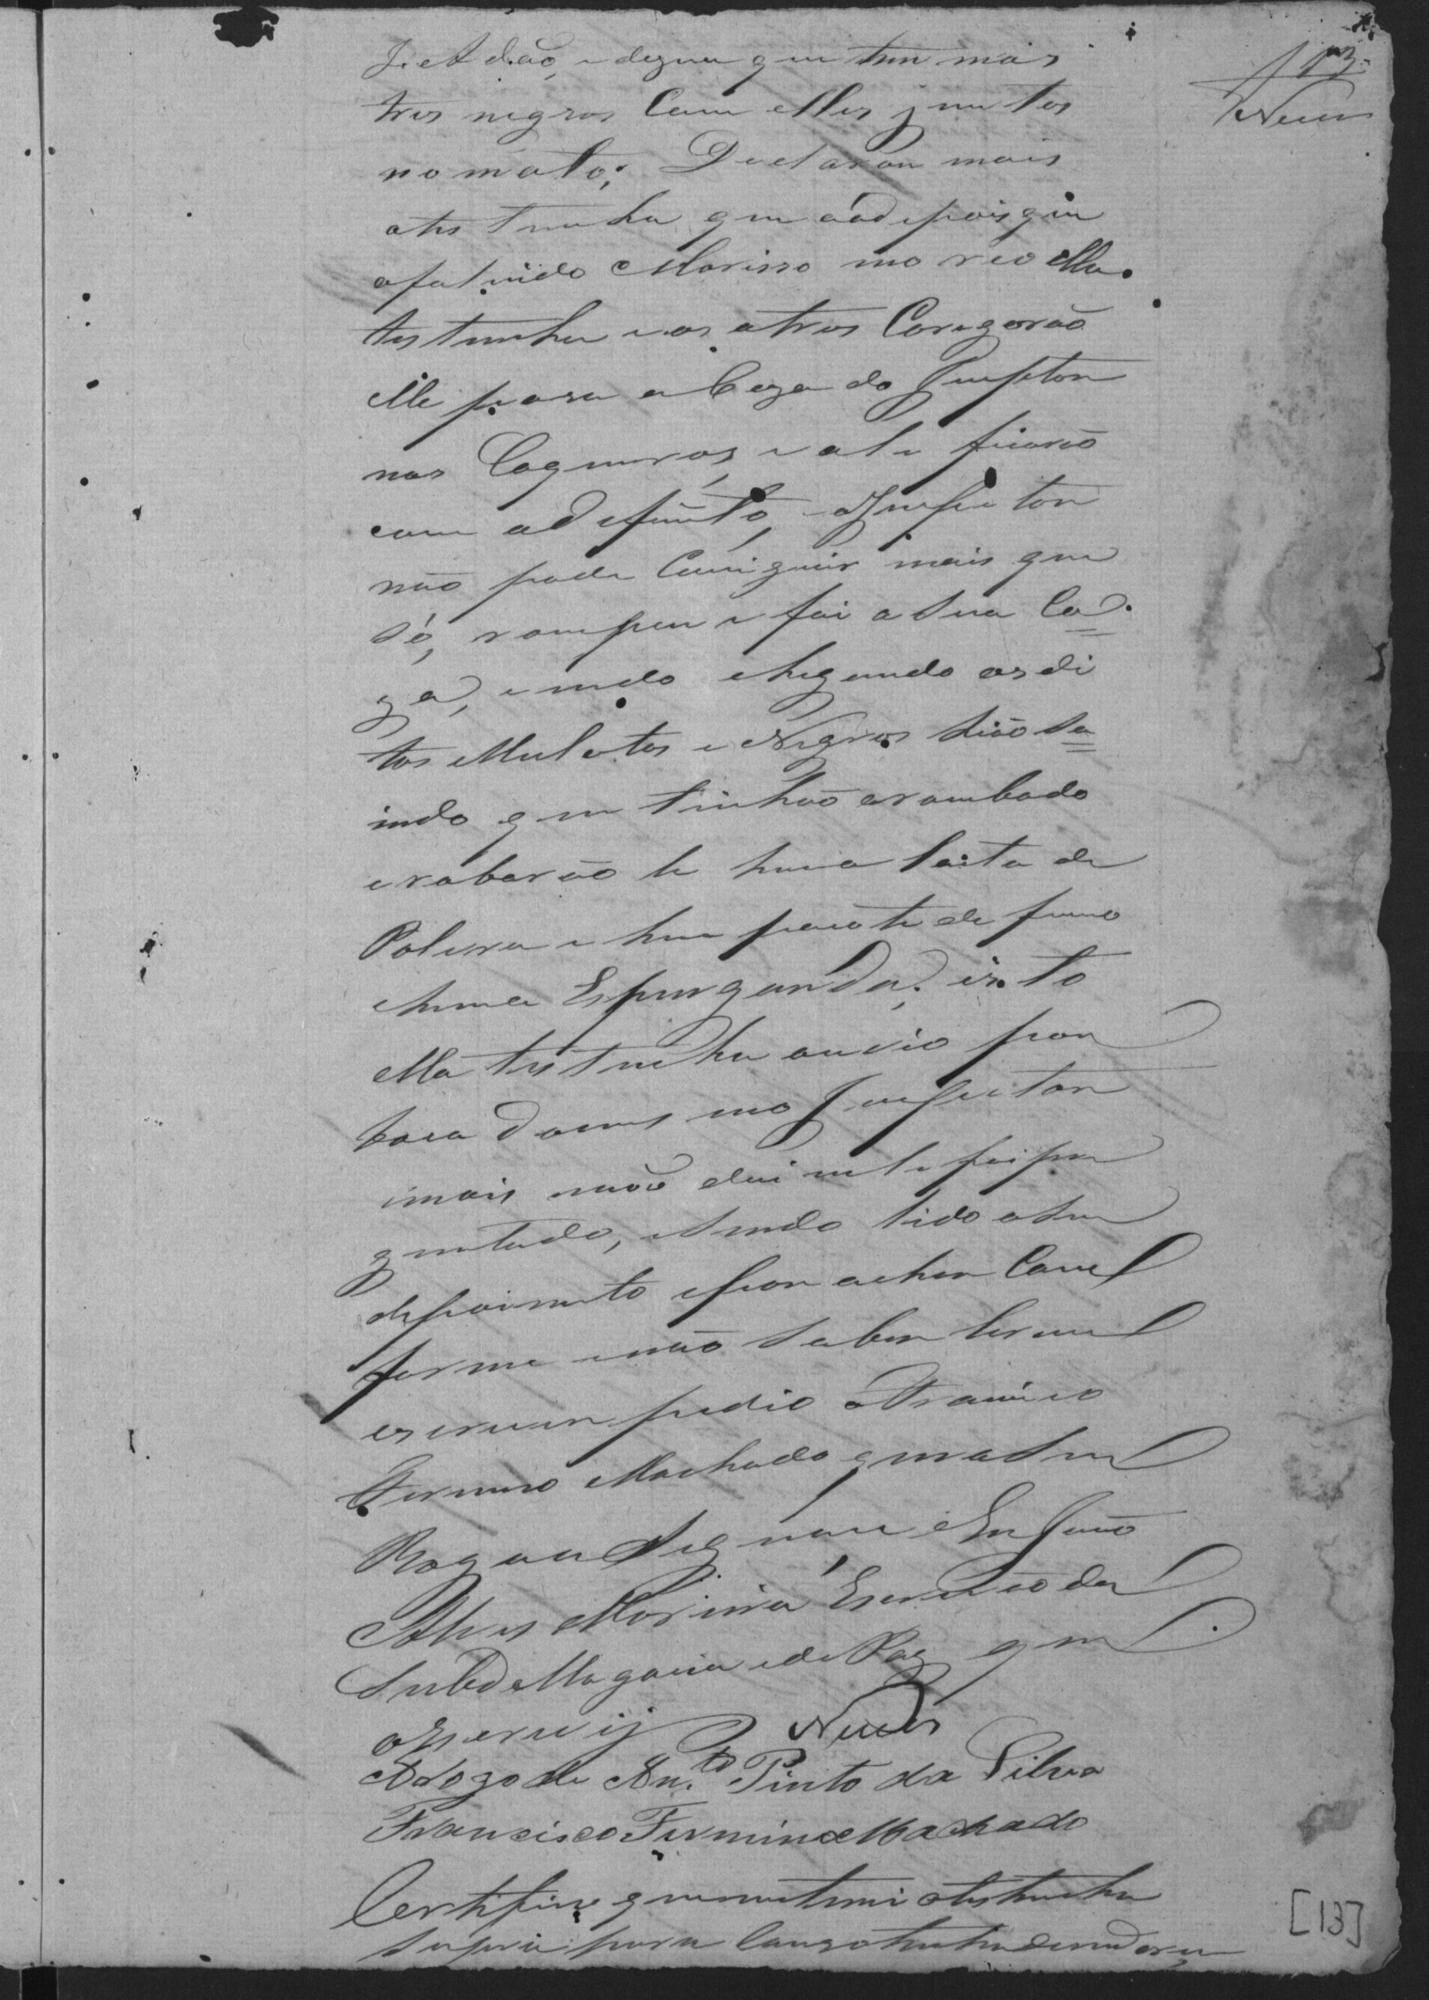 13
Neves
e dizem que tem mais
tres negros Com elles juntos
no mato; Declarou mais
a testunha que ao depois que
o faluido Marisso mo reo ella
testunha e os otros Coregarão
elle para a Caza do Inspetor
nas Coqueiras, e ali ficarão
com o defunto, o Inspetor
não pode Consiguir mais que
só, rompeu e foi a sua Ca=
za, e indo chegando os di
tos Mulatos e Negros sião sa=
indo que tinhão arombado
e robarão le huma laita de
Polvra e hum pacote de fumo
e huma Espingarda; isto
ella testunha ouvio por
boca do mesmo Inspector
e mais não dice nem le foi per
guntado, e sendo lido o seu
depoimento e por achar Com
forme e não saber ler nem
escrever pedio a Francisco
Fermino Machado que a seu
Rogo asignase eu
Alves Moreira Escrivão da
Subdellagacia e de Paz que
o Escrevij Neves
A Rogo de Anto. Pinto da Silva
Francisco Fermino Machado
Certifico que notimei a testunha
supra para
[13]